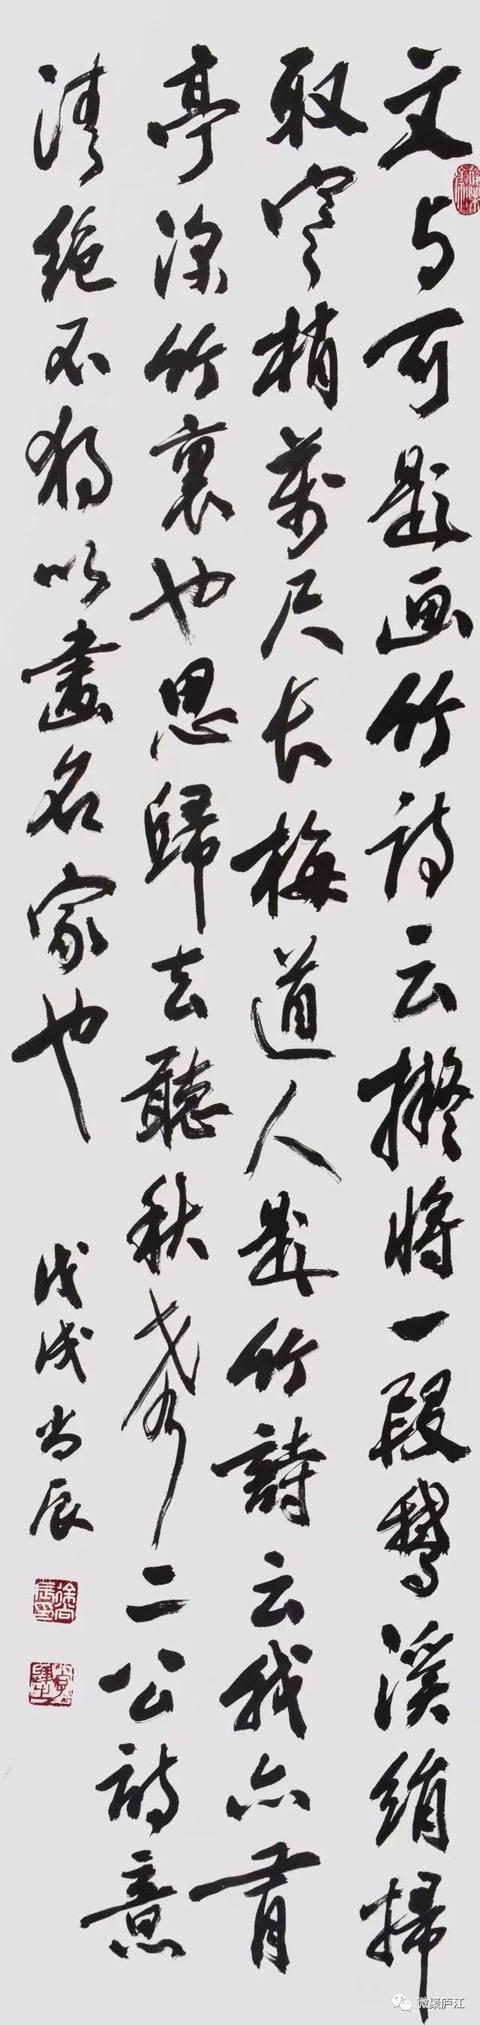 文与可题画竹诗云擬将一段鹅溪绢掃
取寒梢萬尺长梅道人题竹詩云我亦有
亭深竹裏也思歸去聽秋声二公诗意
清绝不独以畫名家也
戊戌尚辰
微聚庐江